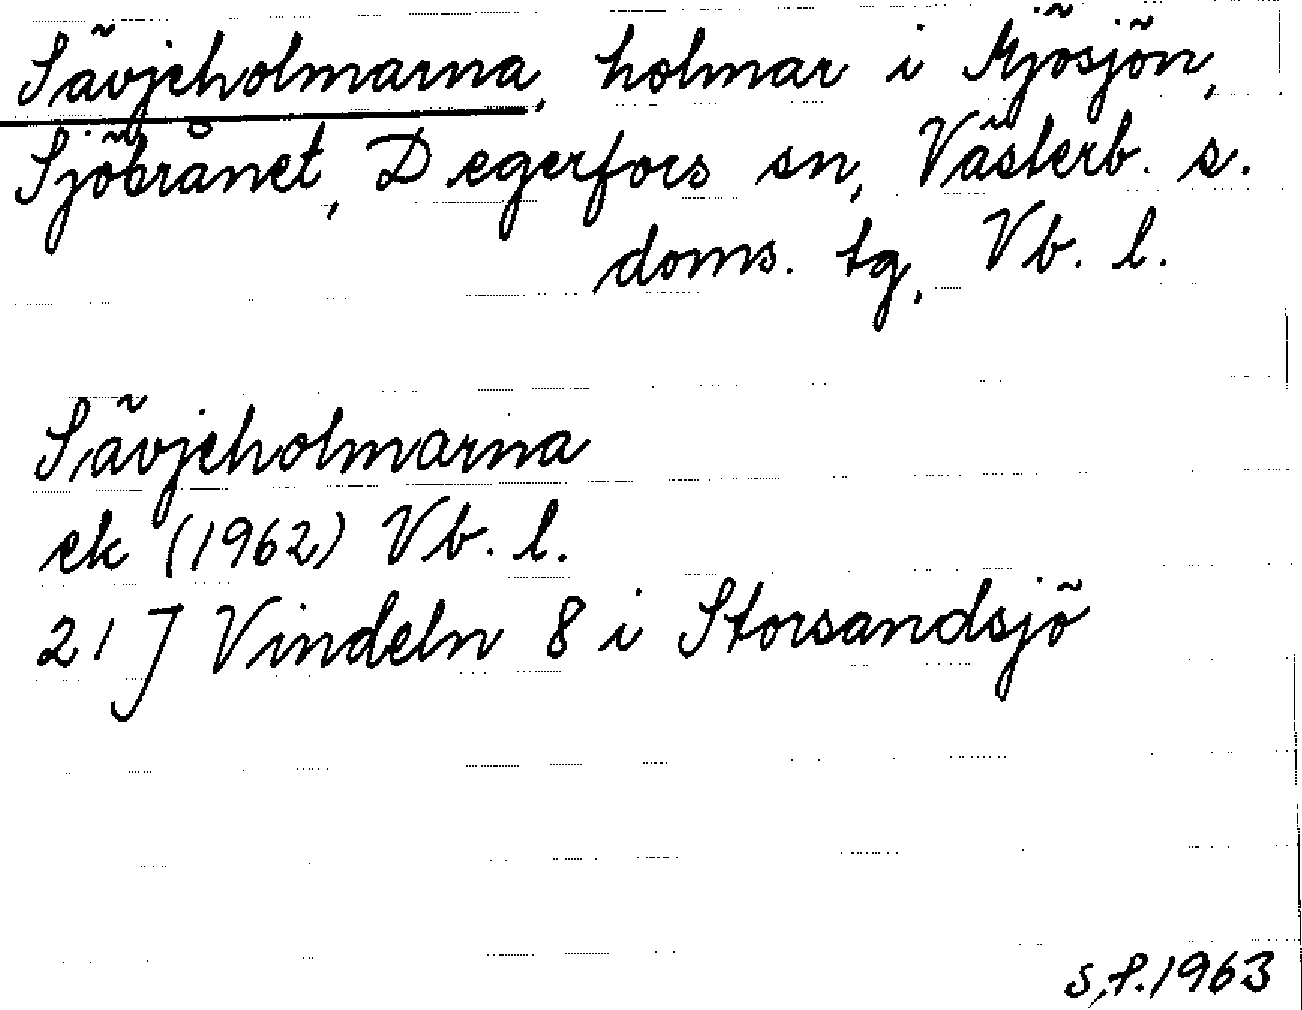 Sävjeholmarna, holmar i Mjösjön,
Sjöbrånet, Degerfors sn, Västerb. s.
doms. tg, Vb. l.
Sävjeholmarna
ek (1962) Vb. l.
21 J Vindeln 8 i Storsandsjö
S.P. 1963